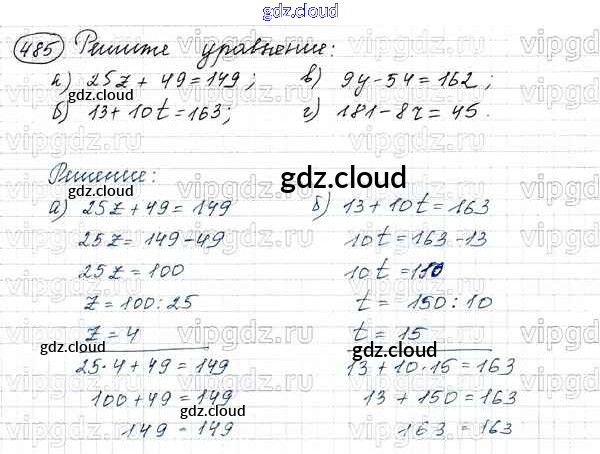 gdz.cloud
485 Решите уравнение:
а) 25z + 49 = 149; в) 9y - 54 = 162;
gdz.cloud
б) 13 + 10t = 163; г) 181 - 8r = 45.
gdz.cloud
Решение:
gdz.cloud
а) 25z + 49 = 149 б) 13 + 10t = 163
25z = 149 - 49 10t = 163 - 13
25z = 100 10t = 150
z = 100 : 25 t = 150 : 10
z = 4 t = 15
gdz.cloud gdz.cloud
25 · 4 + 49 = 149 13 + 10 · 15 = 163
100 + 49 = 149 13 + 150 = 163
gdz.cloud
149 = 149 163 = 163
vipgdz.ru